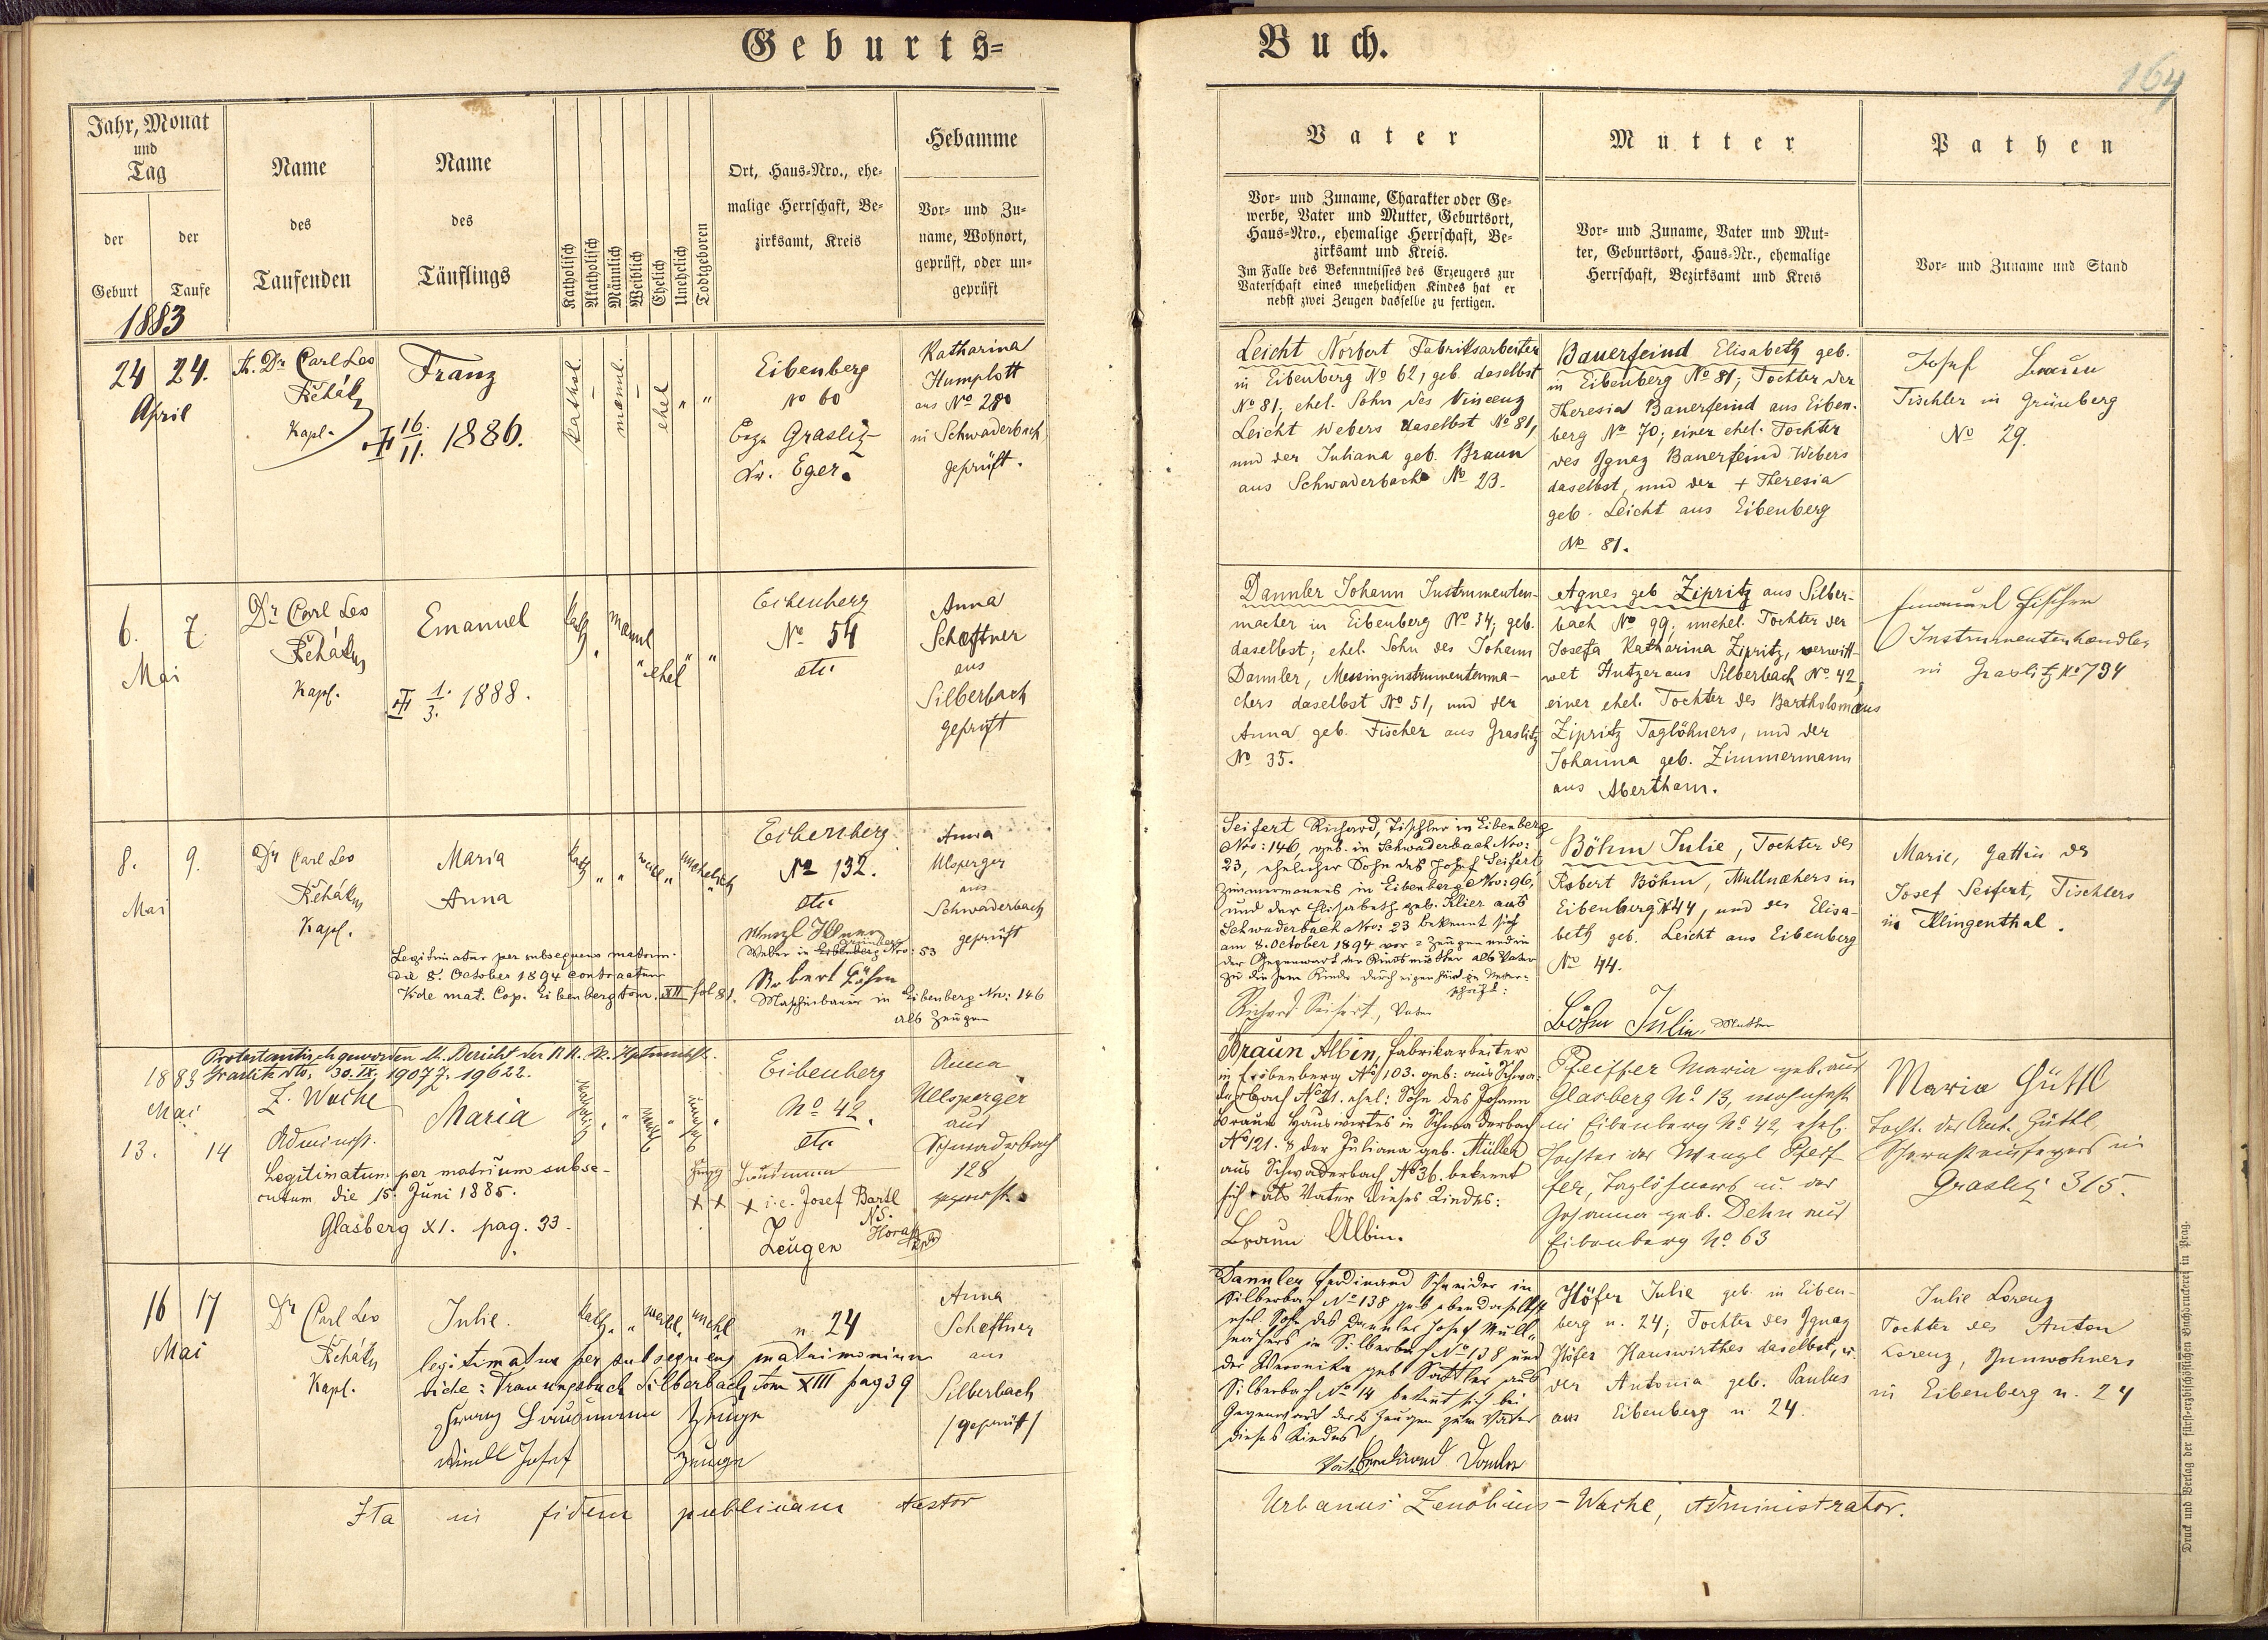 Geburts=
Buch.
164
Jahr, Monat
und
Tag
der
Geburt
der
Taufe
1883
Name
des
Taufenden
Name
des
Täuflings
Katholisch
Akatholisch
Männlich
Weiblich
Ehelich
Unehelich
Todtgeboren
Ort, Haus=Nro., ehe=
malige Herrschaft, Be=
zirksamt, Kreis
Hebamme
Vor= und Zu=
name, Wohnort,
geprüft, oder un=
geprüft
Vater
Vor= und Zuname, Charakter oder Ge=
werbe, Vater und Mutter, Geburtsort,
Haus=Nro., ehemalige Herrschaft, Be=
zirksamt und Kreis.
Im Falle des Bekenntnisses des Erzeugers zur
Vaterschaft eines unehelichen Kindes hat er
nebst zwei Zeugen dasselbe zu fertigen.
Mutter
Vor= und Zuname, Vater und Mut=
ter, Geburtsort, Haus=Nr., ehemalige
Herrschaft, Bezirksamt und Kreis
Pathen
Vor= und Zuname und Stand
24 24.
April
Dr Carl Leo
Řehák
Kapl.
Franz
16.
11. 1886.
kathol.
männl.
ehel
Eibenberg
No 60
Bez. Graslitz
Kr. Eger.
Katharina
Humplott
aus No 280
in Schwaderbach
geprüft.
Leicht Norbert Fabriksarbeiter
in Eibenberg No 62, geb. daselbst
No 81, ehel. Sohn des Vincenz
Leicht Webers daselbst No 81,
und der Juliana geb. Braun
aus Schwaderbach No 23.
Bauerfeind Elisabeth geb.
in Eibenberg No 81; Tochter der
Theresia Bauerfeind aus Eiben-
berg No 70; einer ehel. Tochter
des Ignaz Bauerfeind Webers
daselbst, und der + Theresia
geb. Leicht aus Eibenberg
No 81.
Josef Braun
Tischler in Grünberg
No 29.
6. 7.
Mai
Dr Carl Leo
Řehák
Kapl.
Emanuel
1.
3. 1888.
kath
männl
ehel
Eibenberg
No 54
etc
Anna
Scheftner
aus
Silberbach
geprüft
Dannler Johann Instrumenten-
macher in Eibenberg No 34; geb.
daselbst; ehel. Sohn des Johann
Dannler, Messinginstrumentenma-
chers daselbst No 51, und der
Anna geb. Fischer aus Graslitz
No 35.
Agnes geb Zipritz aus Silber-
bach No 99; unehel. Tochter der
Josefa Katharina Zipritz, verwitt-
wet Hutzer aus Silberbach No 42,
einer ehel. Tochter des Bartholomäus
Zipritz Taglöhners, und der
Johanna geb. Zimmermann
aus Abertham.
Emanuel Fischer
Instrumentenhandler
in Graslitz No 794
8. 9.
Mai
Dr Carl Leo
Řehák
Kapl.
Maria
Anna
Legitimatur per subsequens matrim.
die 8. October 1894 contractum
Vide mat. Cop. Eibenberg tom. XII fol 81.
kath
weibl
unehelich
Eibenberg
No 132.
etc
Weber in Eibenberg Nro: 53
Grünberg
Robert Böhm
Maschinbauer in Eibenberg Nro: 146
als Zeugen
Anna
Ulsperger
aus
Schwaderbach
geprüft
Seifert Richard, Tischler in Eibenberg
Nro: 146, geb. in Schwaderbach Nro:
23, ehelicher Sohn des Josef Seifert
Zimmermanns in Eibenberg Nro: 96,
und der Elisabeth geb. Klier aus
Schwaderbach Nro: 23 bekennt sich
am 8. October 1894 vor 2 Zeugen und in
der Gegenwart der Kindsmutter als Vater
zu diesem Kinde durch eigenhändige Unter-
schrift:
Richard Seifert, Vater
Böhm Julie, Tochter des
Robert Böhm, Mullnähers in
Eibenberg N 44, und der Elisa-
beth geb. Leicht aus Eibenberg
No 44.
Böhm Julie, Mutter
Marie, Gattin des
Josef Seifert, Tischlers
in Klingenthal.
Protestantisch geworden lt. Bericht der K.K. Bz. Hptmnsch.
Graslitz dto. 30. IX. 1907 Z. 19622.
1883
Mai
13. 14
Z. Wache
Administ.
Maria
Legitimatum per matrium subse-
cutum die 15. Juni 1885.
Glasberg XI. pag. 33.
Eibenberg
No 42.
etc
x i.e. Josef Bartl
Zeugen
Anna
Ullsperger
aus
Schwaderbach
128
Braun Albin, Fabrikarbeiter
in Eibenberg No 103. geb: aus Schwa-
derbach No 21. ehel: Sohn des Johann
Braun Hauswirtes in Schwaderbach
No 121. & der Juliana geb. Müller
aus Schwaderbach No 36. bekennt
sich als Vater dieses Kindes:
Braun Albin.
Pfeiffer Maria geb. aus
Glasberg No 13, wohnhaft
in Eibenberg No 42, ehel.
Tochter des Wenzl Pfeif
fer, Taglöhners u. der
Johanna geb. Dehn aus
Eibenberg No 63
Maria Güttl
Tocht. des Ant. Güttl
Schornsteinfegers in
Graslitz 315.
16 17
Mai
Dr Carl Leo
Řehák
Kapl.
Julie.
kath.
weibl.
unehl
legitimatur per subsequens matrimonium
vide: Trauungsbuch Silberbach tom XIII pag 39
Zeuge
Josef Zeuge
n. 24
Anna
Scheftner
aus
Silberbach
/geprüft/
Dannler Ferdinand Schneider in
Silberbach No 138 geb ebendaselbst
ehel. Sohn des Dannler Josef Mull-
nähers in Silberbach No 138 und
der Veronika geb Sattler aus
Silberbach No 14 bekennt sich bei
Gegenwart der 2 Zeugen zum Vater
dieses Kindes
Vater Ferdinand Danler
Höfer Julie geb. in Eiben-
berg n. 24; Tochter des Ignaz
Höfer Hauswirthes daselbst, u.
der Antonia geb. Paulus
aus Eibenberg n 24.
Julie Lorenz
Tochter des Anton
Lorenz, Innwohners
in Eibenberg n. 24
Ita in fidem publicam testor
Urbanus Zenobius - Wache, Administrator.
Druck und Verlag der fürst=erzbischöflichen Buchdruckerei in Prag.